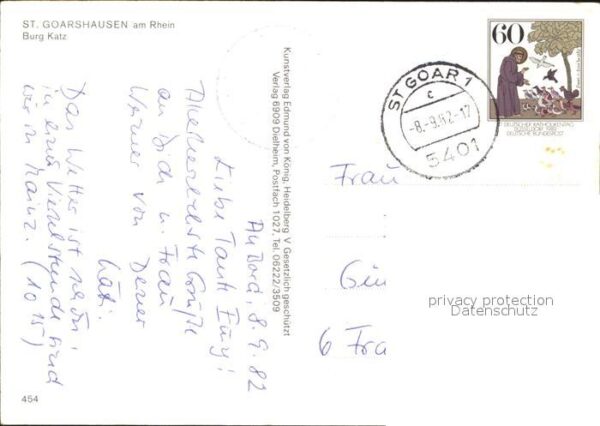 ST. GOARSHAUSEN am Rhein
Burg Katz
An Bord, 8.9.82
Liebe Tante Emy!
Die herzlichsten Grüße
an Dich u. Frau
Werner von Deiner
Käti.
Das Wetter ist schön!
in einer Viertelstunde sind
wir in Mainz. (10 15)
454
Kunstverlag Edmund von König, Heidelberg V Gesetzlich geschützt
Verlag 6909 Dielheim, Postfach 1027, Tel. 06222/3509
ST GOAR 1
c
-8.-9.82-17
5401
60
DEUTSCHER KATHOLIKENTAG
DÜSSELDORF 1982
DEUTSCHE BUNDESPOST
Frau
6 Fra
privacy protection
Datenschutz